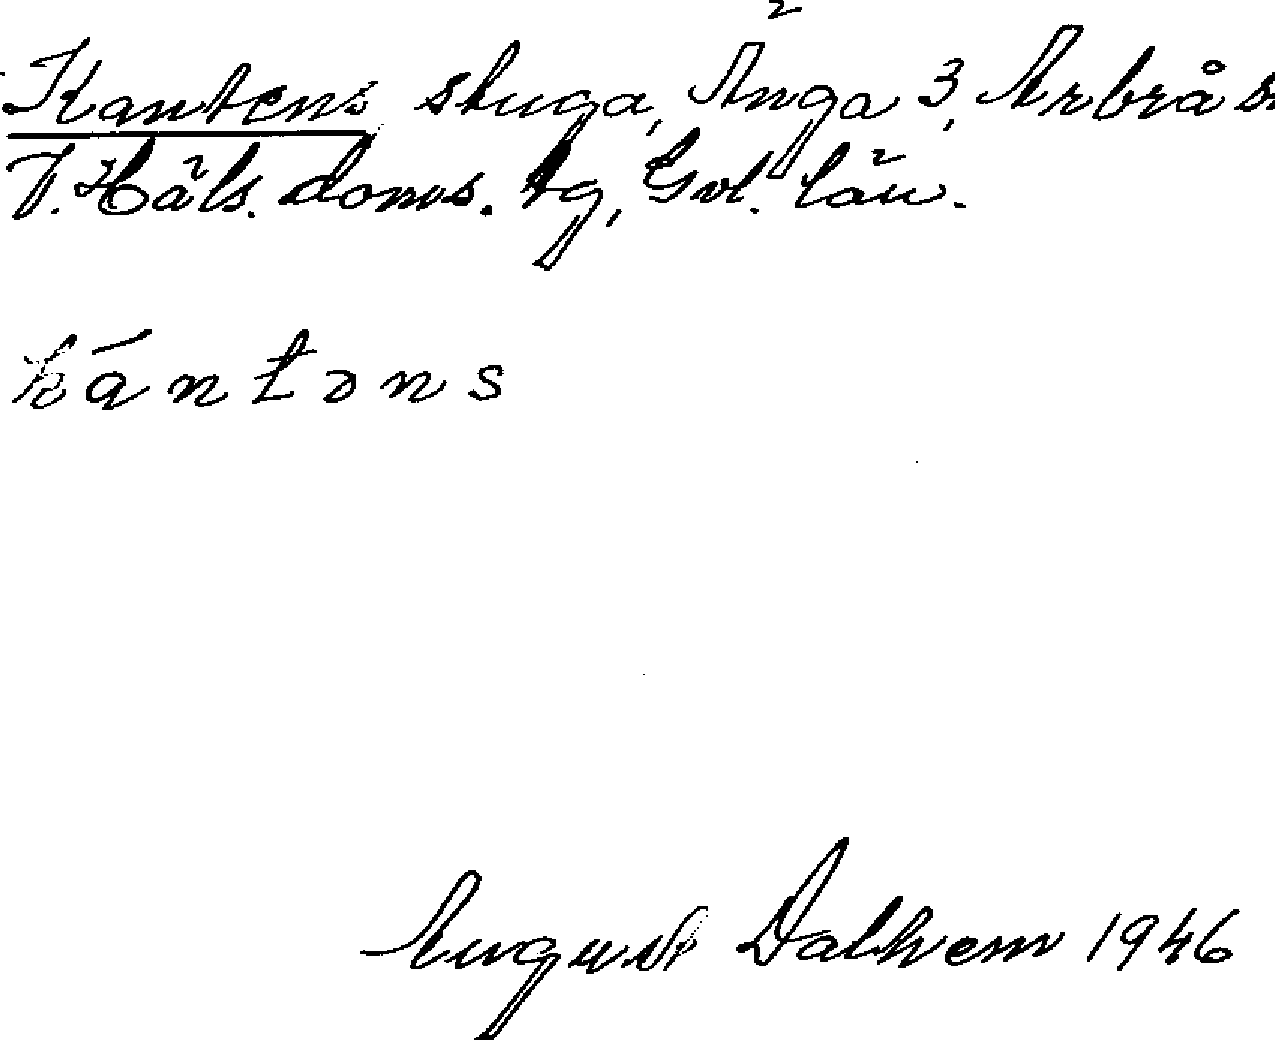 Kantens stuga, Änga 3, Arbrå sn
V. Häls. doms. tg, Gvl. län.
kántəns
August Dalhem 1946